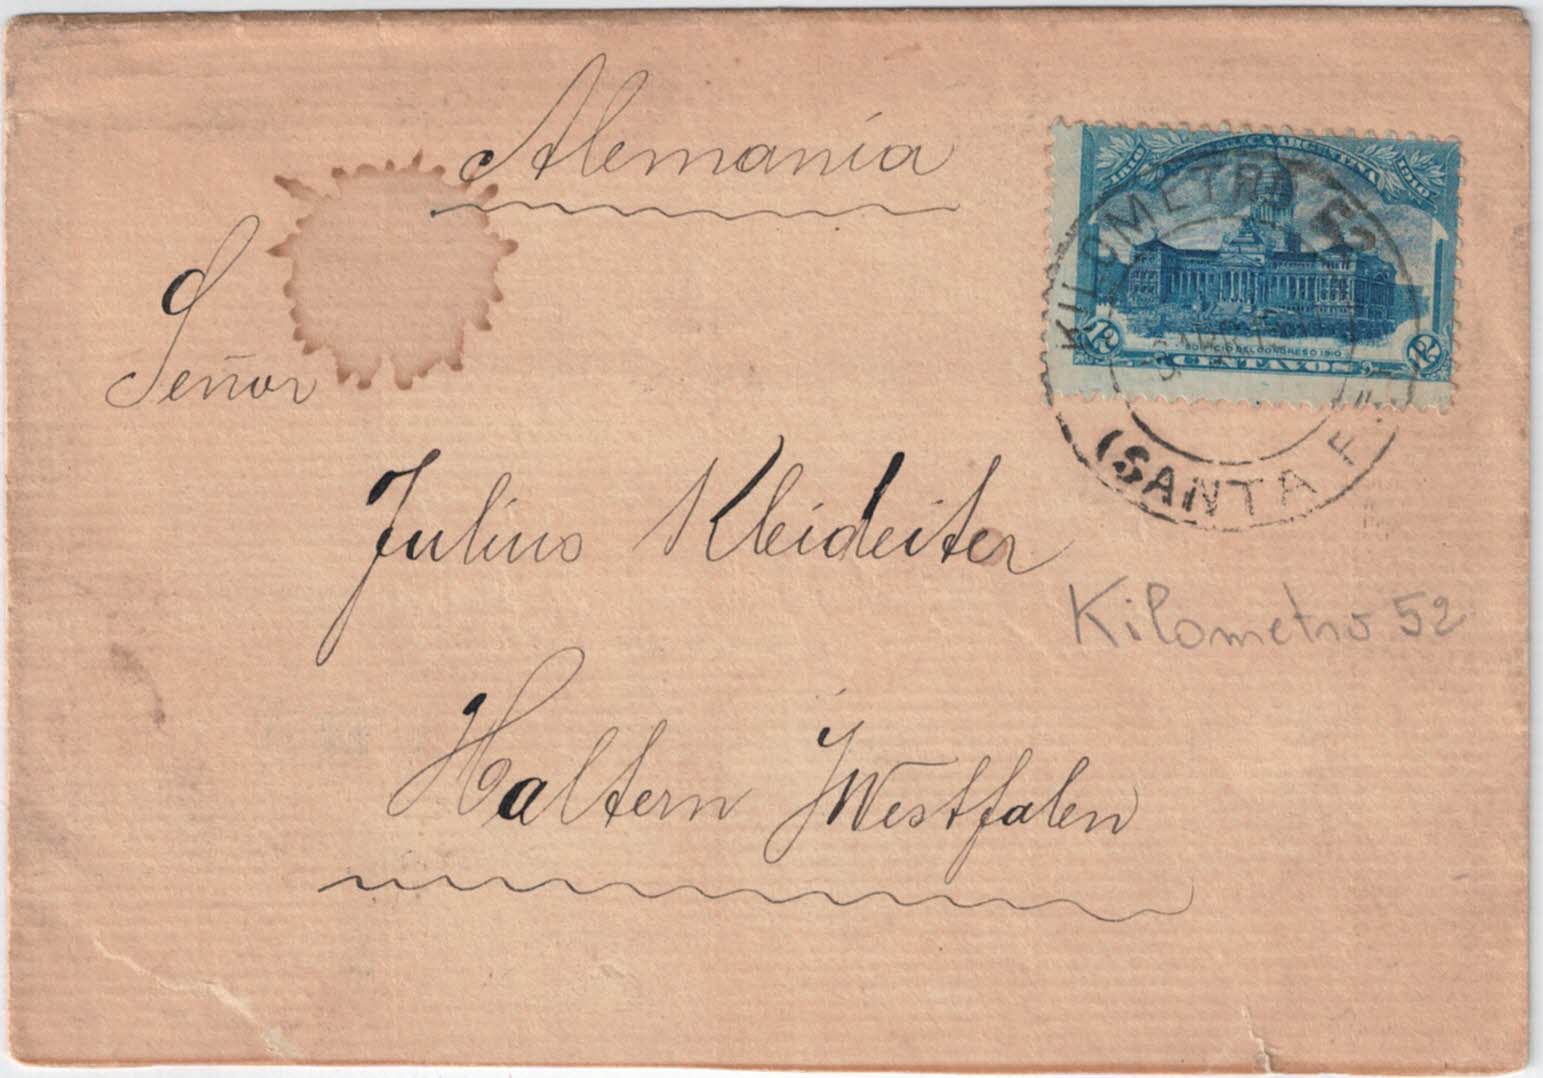 Alemania
Señor
Julius Kleideiter
Haltern i/Westfalen
Kilometro 52
1816 ARGENTINA 1910
EDIFICIO DEL CONGRESO 1910
12 CENTAVOS 12
KILOMETRO 52
(SANTA FE